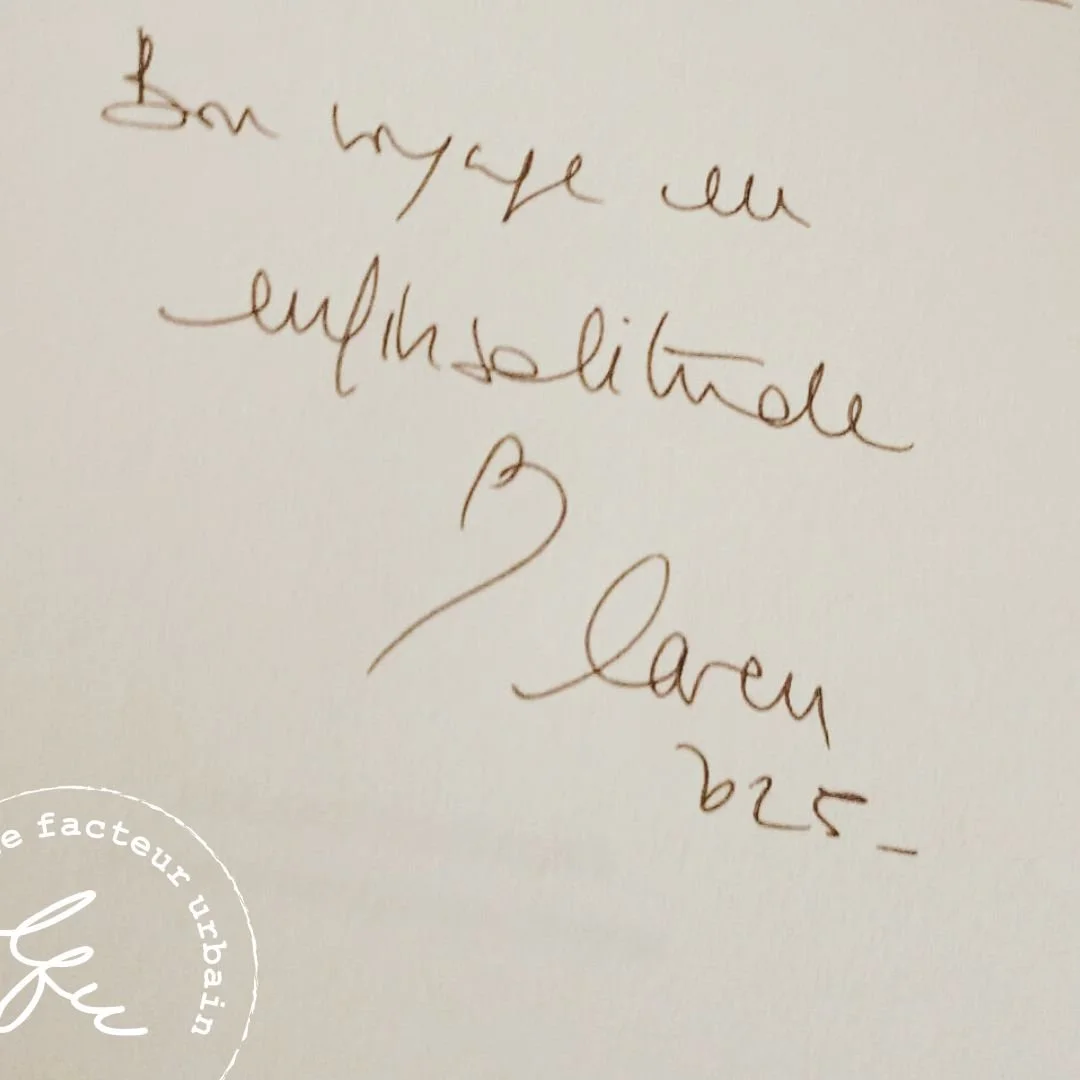 Bon voyage en
enfinsolitude
B
Claren
2025_
e facteur urbain
lfu